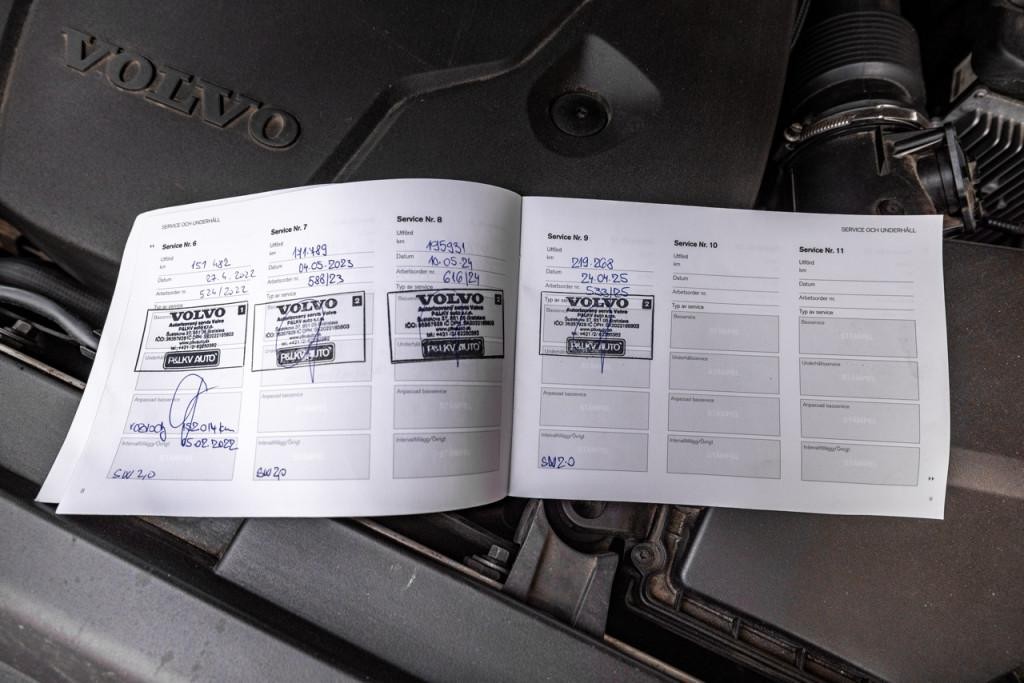 VOLVO
SERVICE OCH UNDERHÅLL
Service Nr. 6
Utförd
km 151 482
Datum 27.4.2022
Arbetsorder nr. 524/2022
Typ av service
VOLVO 1
Autorizovaný servis Volvo
P&LKV auto s.r.o.
P&LKV AUTO
Anpassad basservice
rozvody 152014 km
05.02.2022
Intervalltillägg/Övrigt
SW 2,0
Service Nr. 7
Utförd
km 171.489
Datum 04.05.2023
Arbetsorder nr. 588/23
VOLVO 2
Autorizovaný servis Volvo
P&LKV auto s.r.o.
P&LKV AUTO
Anpassad basservice
Intervalltillägg/Övrigt
SW2,0
Service Nr. 8
Utförd
km 195931
Datum 10.05.24
Arbetsorder nr. 616/24
VOLVO 2
Autorizovaný servis Volvo
P&LKV auto s.r.o.
P&LKV AUTO
Anpassad basservice
Intervalltillägg/Övrigt
SERVICE OCH UNDERHÅLL
Service Nr. 9
Utförd
km 219.268
Datum 24.04.25
Arbetsorder nr. 533/25
Typ av service
VOLVO 2
Autorizovaný servis Volvo
P&LKV auto s.r.o.
P&LKV AUTO
Anpassad basservice
Intervalltillägg/Övrigt
SW 2.0
Service Nr. 10
Utförd
km
Datum
Arbetsorder nr.
Typ av service
Basservice
Underhållsservice
Anpassad basservice
STÄMPEL
Intervalltillägg/Övrigt
STÄMPEL
Service Nr. 11
Utförd
km
Datum
Arbetsorder nr.
Typ av service
Basservice
Underhållsservice
Anpassad basservice
STÄMPEL
Intervalltillägg/Övrigt
STÄMPEL